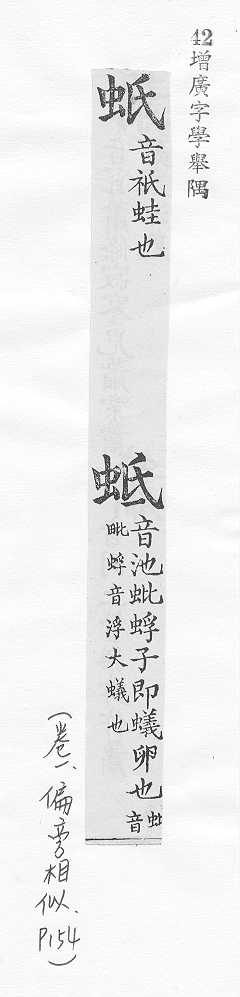 42增廣字學舉隅
蚔音祇蛙也
蚳音池蚍蜉子即蟻卵也蚍音
毗蜉音浮大蟻也
(卷一、偏旁相似、P154)